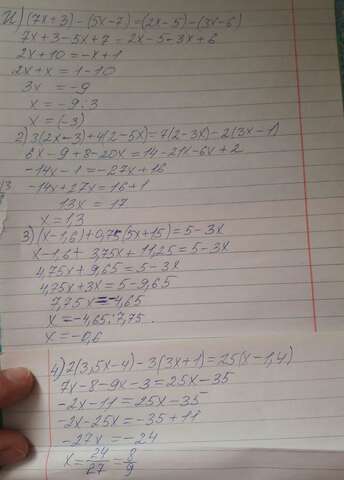 1) (7x+3)-(5x-7)=(2x-5)-(3x-6)
7x+3-5x+7=2x-5-3x+6
2x+10=-x+1
2x+x=1-10
3x=-9
x=-9:3
x=(-3)
2) 3(2x-3)+4(2-5x)=7(2-3x)-2(3x-1)
6x-9+8-20x=14-21x-6x+2
-14x-1=-27x+16
-14x+27x=16+1
13x=17
x=1,3
3) (x-1,6)+0,75(5x+15)=5-3x
x-1,6+3,75x+11,25=5-3x
4,75x+9,65=5-3x
4,75x+3x=5-9,65
7,75x=-4,65
x=-4,65:7,75
x=-0,6
4) 2(3,5x-4)-3(3x+1)=25(x-1,4)
7x-8-9x-3=25x-35
-2x-11=25x-35
-2x-25x=-35+11
-27x=-24
x=24/27=8/9